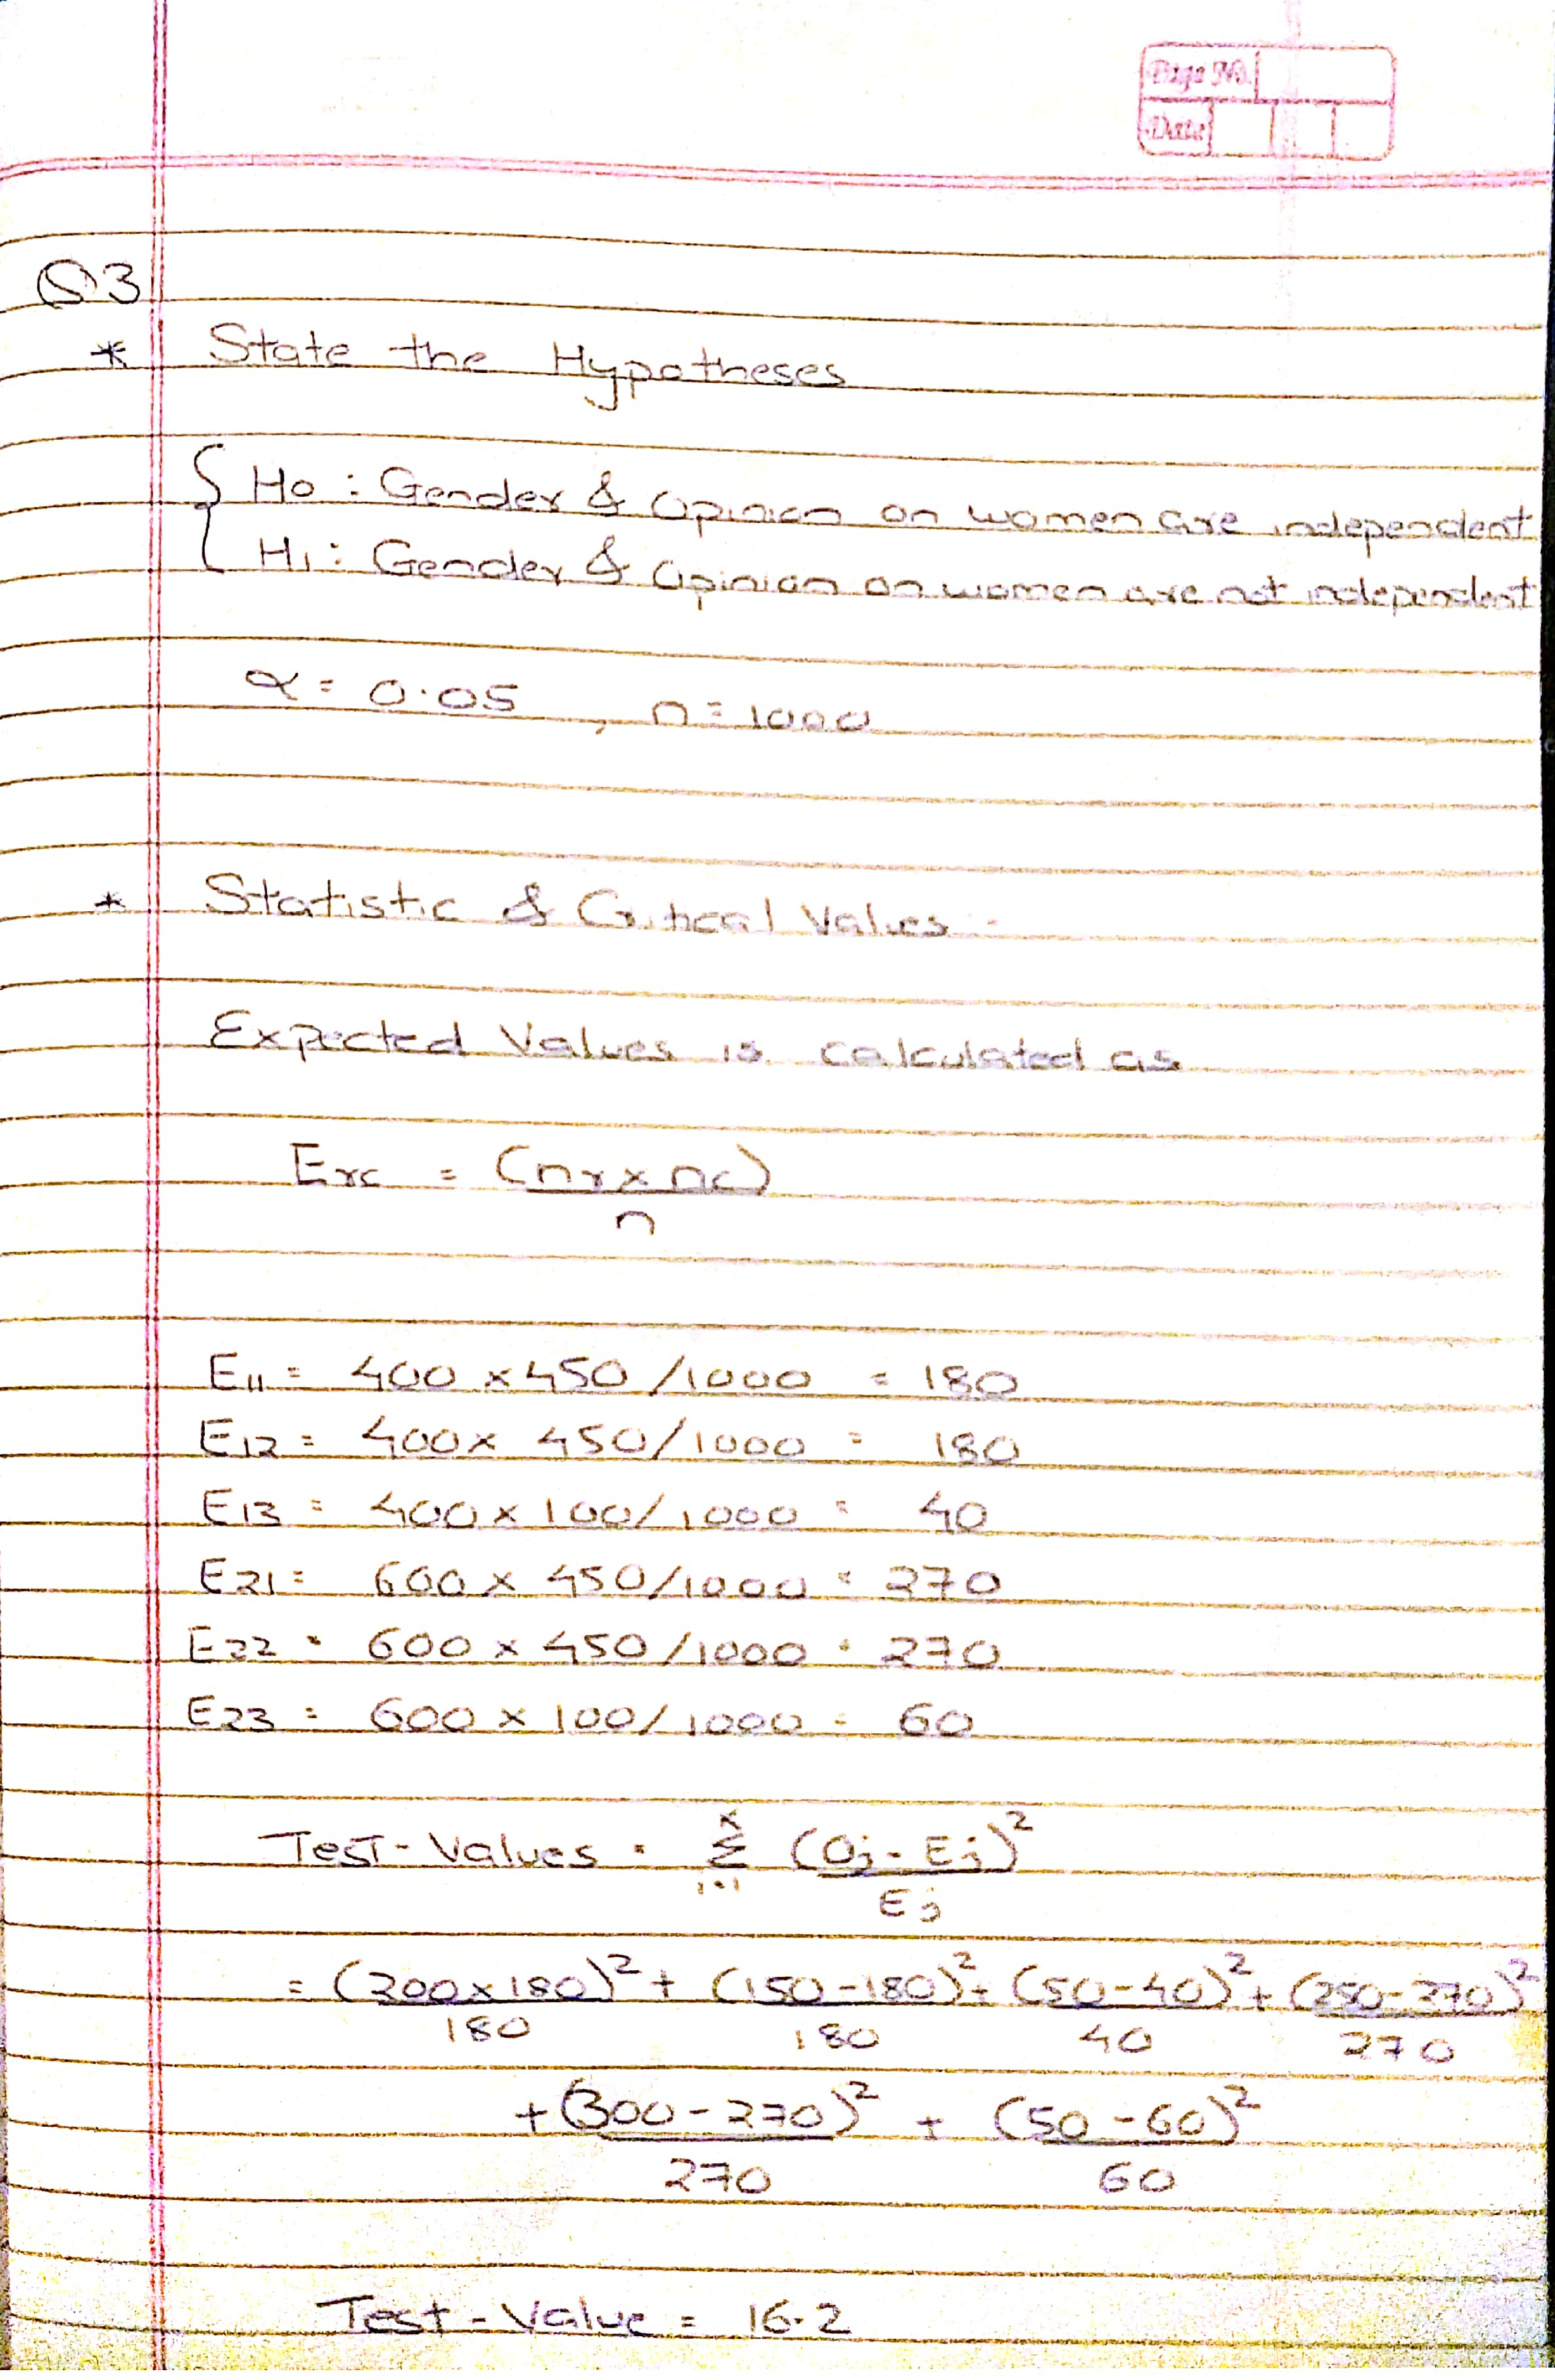 Page No.
Date
Q3
* State the Hypotheses
H0 : Gender & Opinion on women are independent
H1 : Gender & Opinion on women are not independent
α = 0.05 , n = 1000
* Statistic & Critical Values -
Expected Values is calculated as
Erc = (nr x nc)
n
E11 = 400 x 450 /1000 = 180
E12 = 400 x 450/1000 = 180
E13 = 400 x 100/1000 = 40
E21 = 600 x 450/1000 = 270
E22 = 600 x 450/1000 = 270
E23 = 600 x 100/1000 = 60
Test-Values = Σ (Oj - Ej)²
i=1 Ej
= (200x180)² + (150-180)² + (50-40)² + (250-270)²
180 180 40 270
+ (300-270)² + (50-60)²
270 60
Test-Value = 16.2